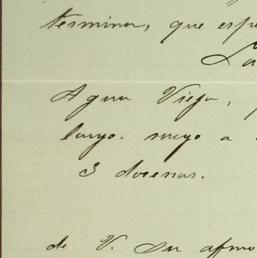 termina, que esp
La
Agua Vieja,
largo. meyo a
3 docenas.
de V. Su afmo